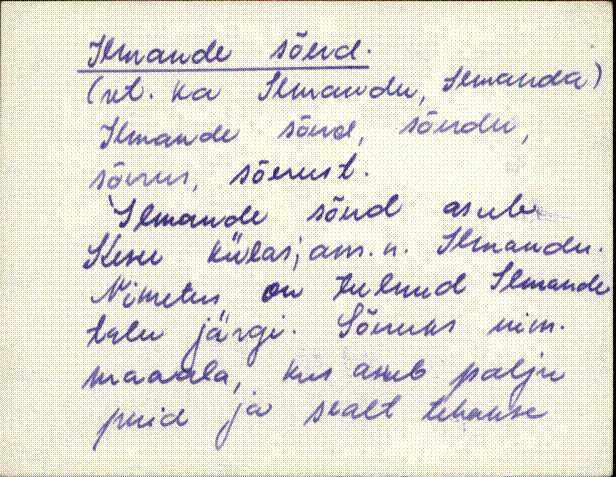 Ilmande sõerd.
(vt. ka Ilmandu, Ilmanda)
Ilmande sõerd, sõerdu,
sõerus, sõerust.
Ilmande sõerd asub
Kesk külas; am. n. Ilmandu.
Nimetus on tulnud Ilmande
talu järgi. Sõeruks nim.
maaala, kus asub palju
puid ja sealt tehakse